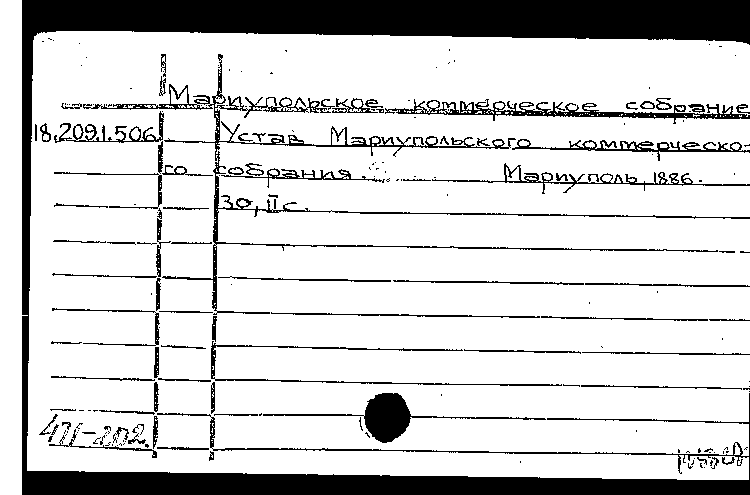 Мариупольское коммерческое собрание
18.209.1.506. Устав Мариупольского коммерческо-
го собрания. Мариуполь, 1886.
30, II с.
471-202.